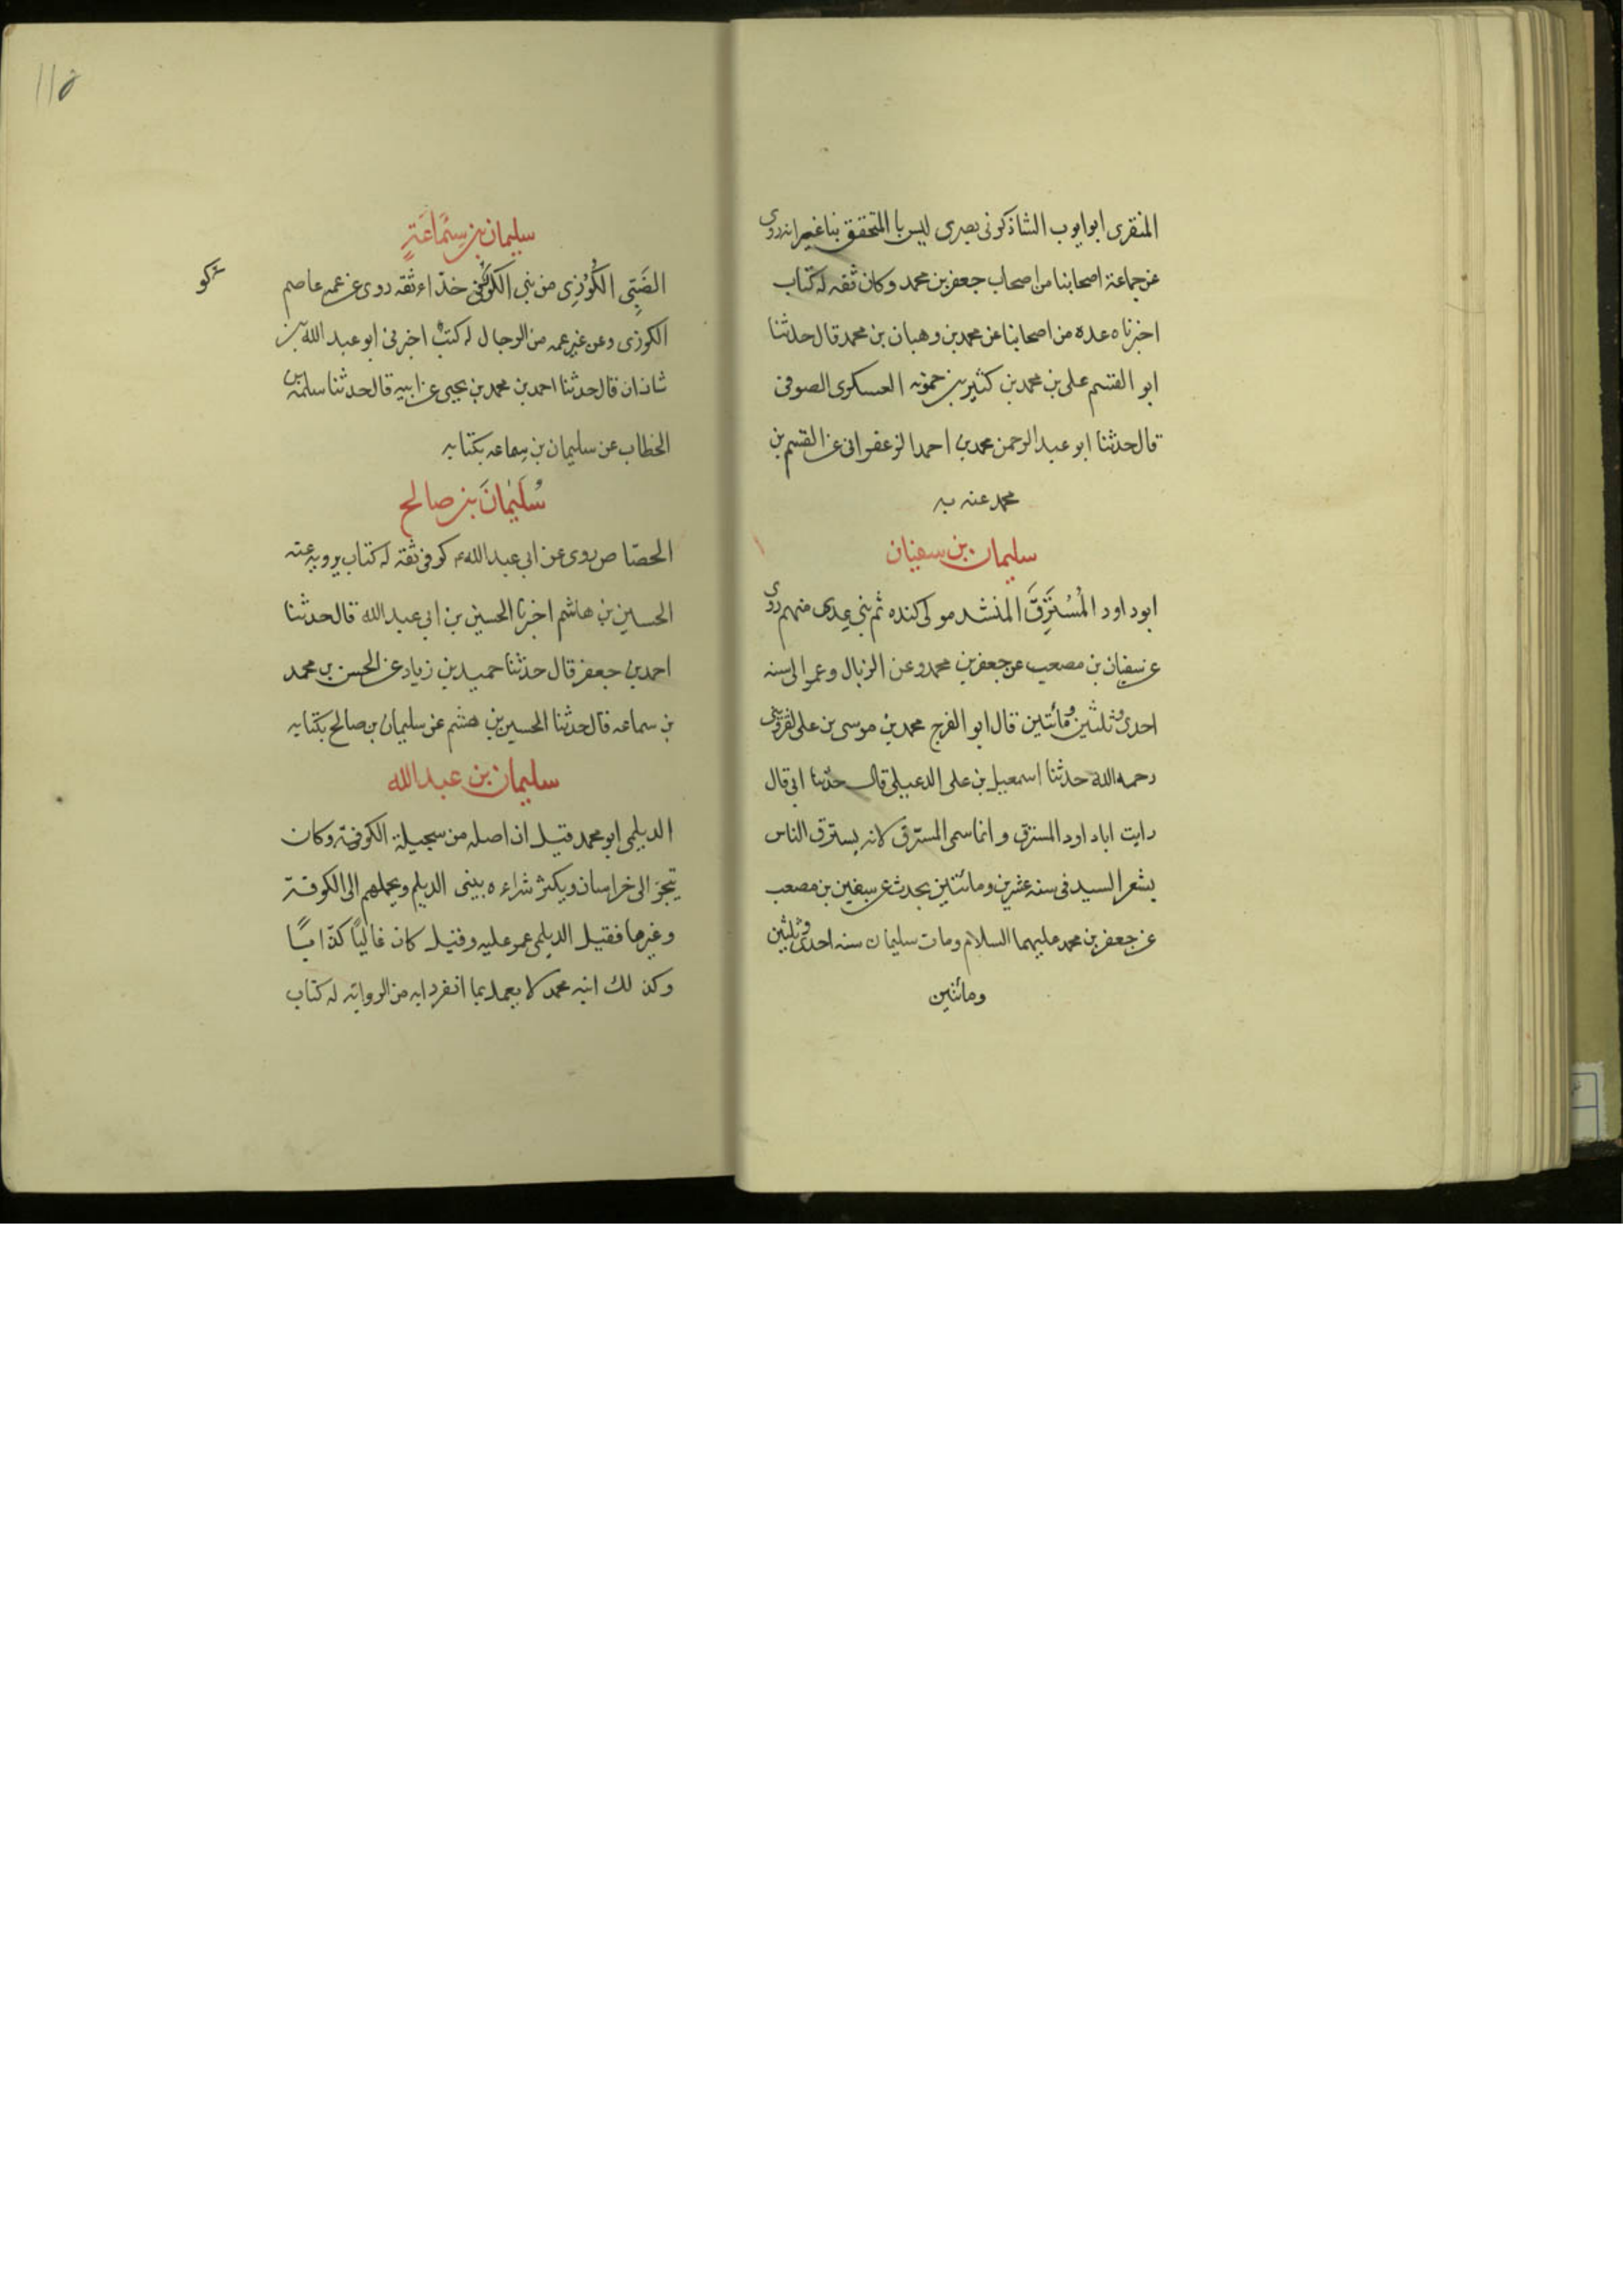 المنقرى ابوايوب الشاذكونى بصرى ليس با المتحقق بنا غير انه روى
عن جماعة اصحابنا من اصحاب جعفر بن محمد وكان ثقه له كتاب
اخبرناه عده من اصحابنا عن محمد بن وهبان بن محمد قال حدثنا
ابو القسم على بن محمد بن كثير بن حمويه العسكرى الصوفى
قال حدثنا ابو عبد الرحمن محمد بن احمد الزعفرانى عن القسم بن
محمد عنه به
سليمان بن سفيان
ابوداود المُسْتَرِقَّ المنشد مولى كنده ثم بنى عدى منهم روى
عن سفيان بن مصعب عن جعفر بن محمد وعن الزبال وعمر الى سنه
احدى وثلثين ومائتين قال ابو الفرج محمد بن موسى بن على القزوينى
رحمه الله حدثنا اسمعيل بن على الدعبلى قال حدثنا ابى قال
رايت اباداود المسترق وانما سمى المسترق لانه يسترق الناس
بشعر السيد فى سنه عشرين ومائتين يحدث عن سفين بن مصعب
عن جعفر بن محمد عليهما السلام ومات سليمان سنه احدى وثلثين
ومائتين
١١٥
سليمان بن سِمَاعَةٍ
الضَبِّى الكُوْزِى من بنى الكوز كوفى حذاء ثقه روى عن عمه عاصم
الكوزى وعن غير عمه من الرجال له كتب اخبرنى ابو عبد الله بن
شاذان قال حدثنا احمد بن محمد بن يحيى عن ابيه قال حدثنا سلمه بن
الخطاب عن سليمان بن سماعه بكتابه
سُلَيْمانَ بن صالح
الحصّاص روى عن ابى عبد الله ع كوفى ثقه له كتاب يرويه عنه
الحسين بن هاشم اخبرنا الحسين بن ابى عبد الله قال حدثنا
احمد بن جعفر قال حدثنا حميد بن زياد عن الحسن بن محمد
بن سماعه قال حدثنا الحسين بن هشم عن سليمان بن صالح بكتابه
سليمان بن عبد الله
الديلمى ابو محمد قيل ان اصله من بجيلة الكوفة وكان
يتجر الى خراسان ويكثر شراءه بينى الديلم ويحملهم الى الكوفة
وغيرها فقيل الديلمى عمر عليه وقيل كان غاليًا كذابًا
وكذلك ابنه محمد لا يعمل بما انفردا به من الروايه له كتاب